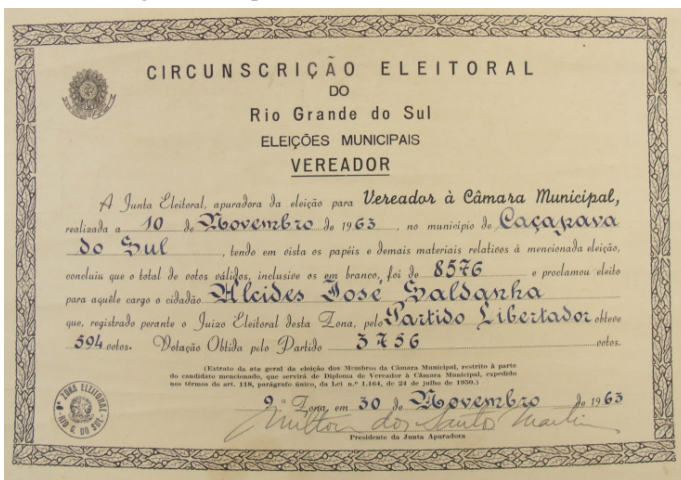 CIRCUNSCRIÇÃO ELEITORAL
DO
Rio Grande do Sul
ELEIÇÕES MUNICIPAIS
VEREADOR
A Junta Eleitoral, apuradora da eleição para Vereador à Câmara Municipal,
realizada a 10 de Novembro de 1963, no município de Caçapava
do Sul, tendo em vista os papéis e demais materiais relativos à mencionada eleição,
concluiu que o total de votos válidos, inclusive os em branco, foi de 8576 e proclamou eleito
para aquêle cargo o cidadão Alcides José Saldanha
que, registrado perante o Juizo Eleitoral desta Zona, pelo Partido Libertador obteve
594 votos. Votação Obtida pelo Partido 3756 votos.
(Extrato da ata geral da eleição dos Membros da Câmara Municipal, restrito à parte
do candidato mencionado, que servirá de Diploma de Vereador à Câmara Municipal, expedido
nos têrmos do art. 118, parágrafo único, da Lei n.º 1.164, de 24 de julho de 1950.)
9.ª Zona, em 30 de Novembro de 1963
Milton dos Santos Martins
Presidente da Junta Apuradora
ZONA ELEITORAL
RIO G. DO SUL